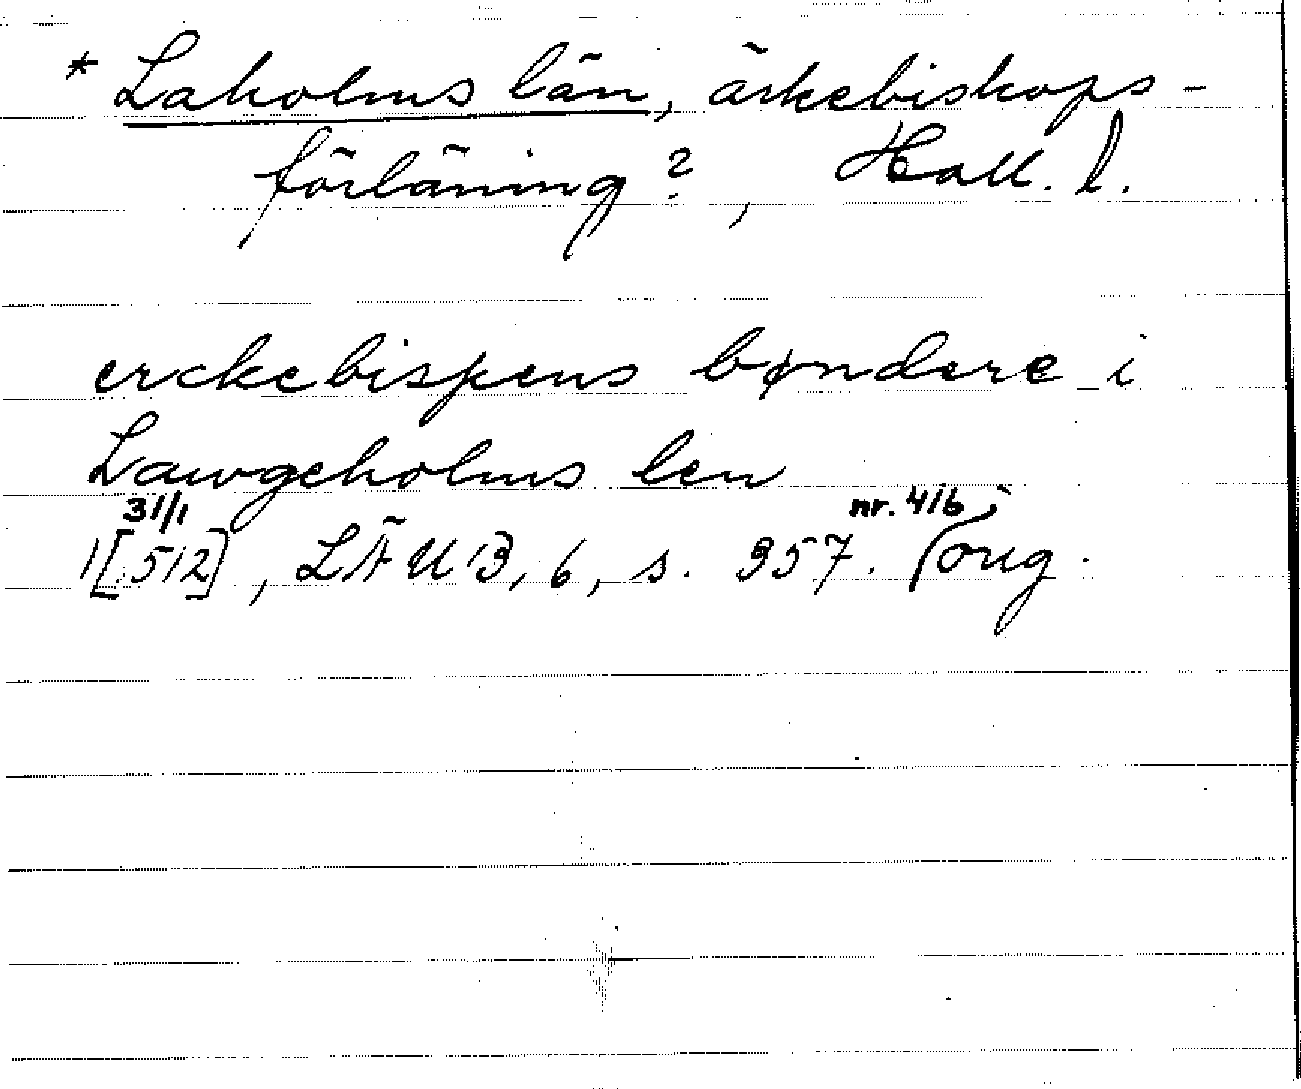 * Laholms län, ärkebiskops-
förläning?, Hall. l.
erckebispens bøndere i
Lawgeholms len
31/1 nr. 416
1[512], LÄUB, 6, s. 357. (orig.